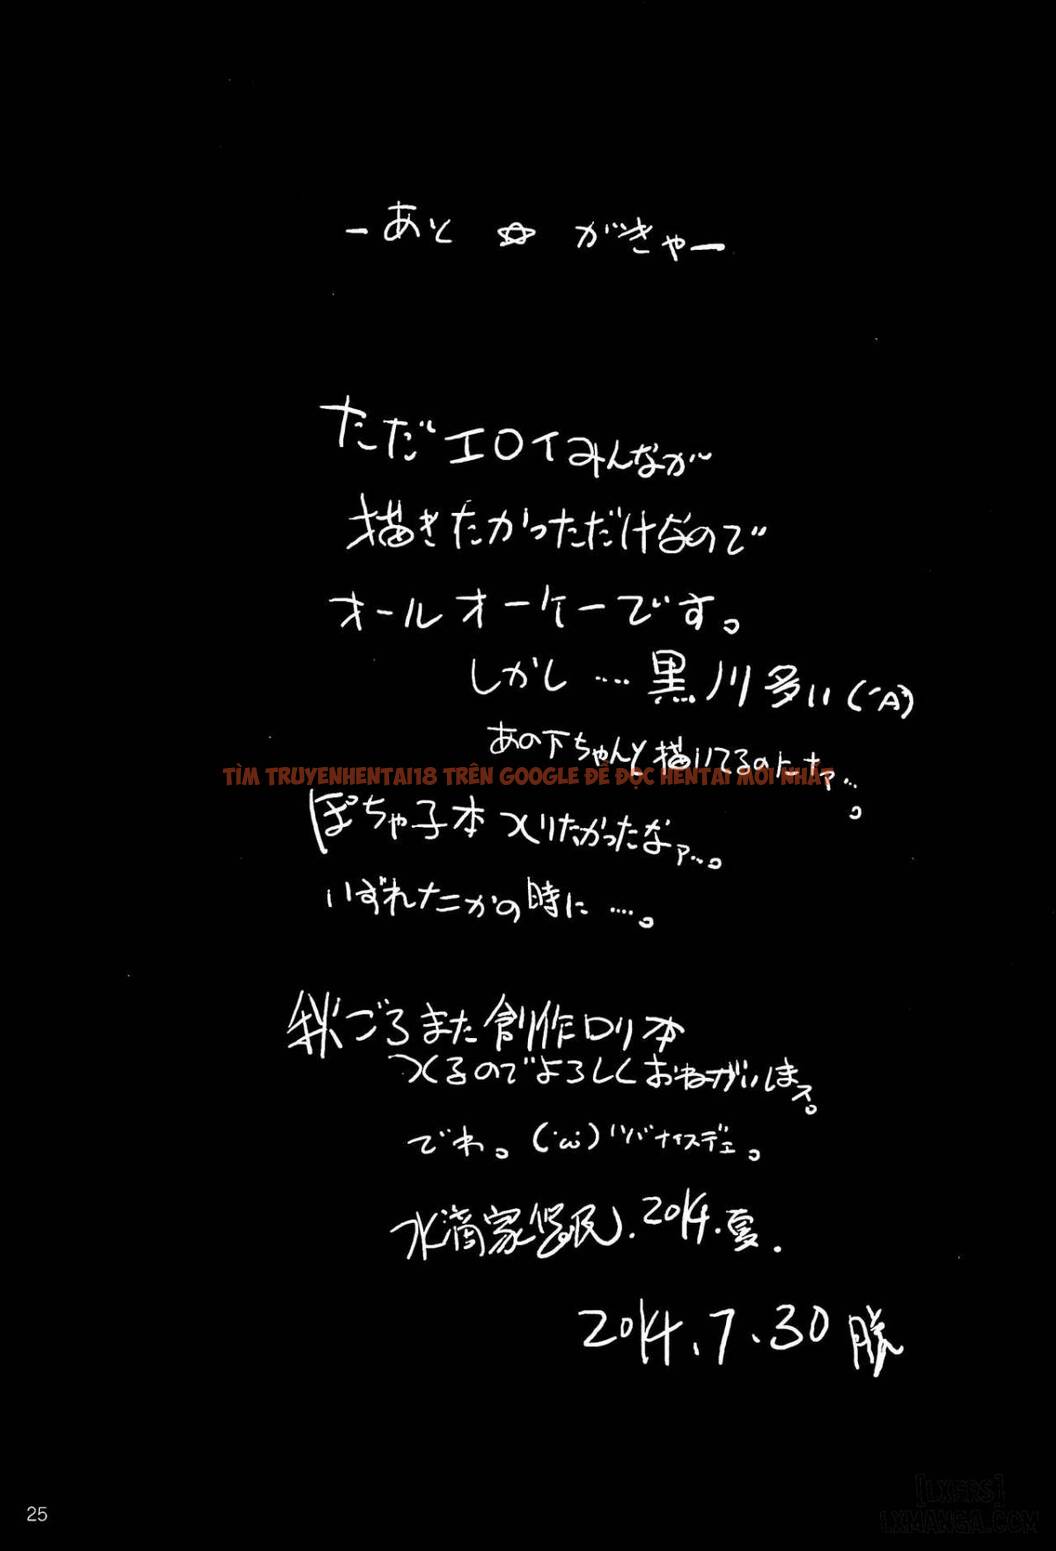 ーあと☆がきゃー
ただエロイみんなが
描きたかっただけなので
オールオーケーです。
しかし‥‥黒ノリ多い(´A`)
あの下ちゃんと描いてるのトナァ…。
TÌM TRUYENHENTAI18 TRÊN GOOGLE ĐỂ ĐỌC HENTAI MỚI NHẤT
ぽちゃ子本つくりたかったなァ…。
いずれナニかの時に‥‥。
秋ごろまた創作ロリ本
つくるのでよろしくおねがいしまス。
でわ。(´ω`)ノシバナイスデェ。
水滴家 2014.夏.
2014.7.30
25
[LXERS]
LXMANGA.COM